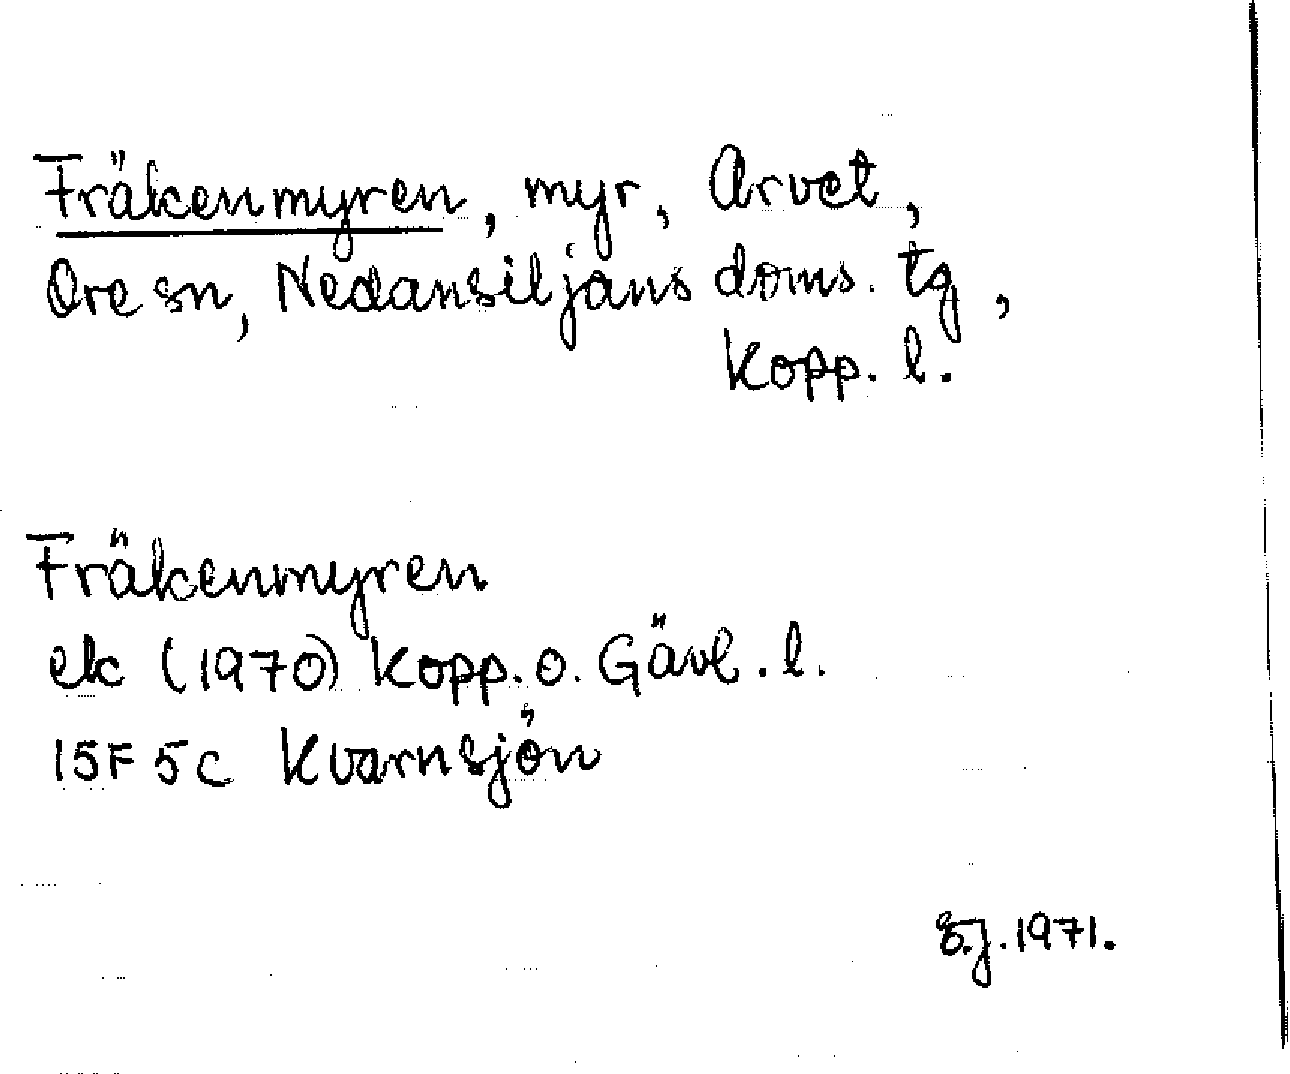 Fräkenmyren, myr, Arvet,
Ore sn, Nedansiljans doms. tg,
Kopp. l.
Fräkenmyren
ek (1970) Kopp. o. Gävl. l.
15F 5c Kvarnsjön
G.J. 1971.